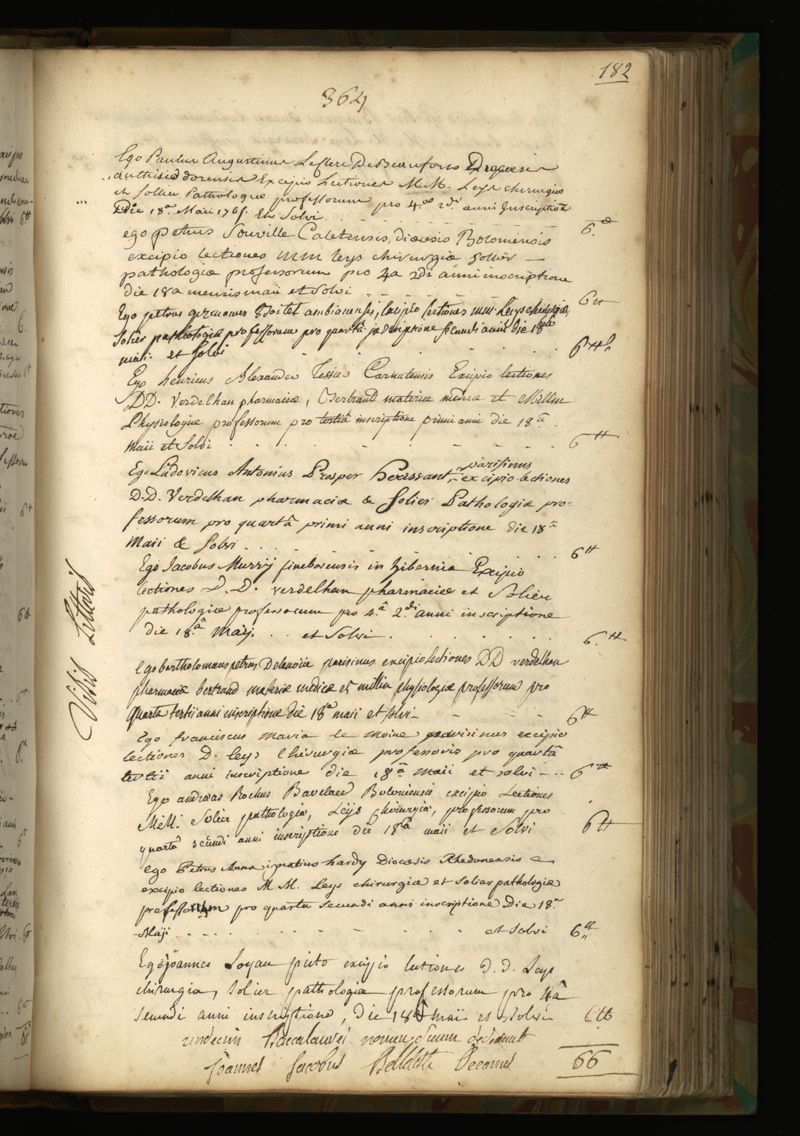 182
364
Ego Paulus Augustinus Leclerc De Beauforts Diocesis
authissidorensis Excipio Lectiones M.M. Leys chirurgiæ
et Sollier Pathologiæ professorum pro 4.ta 2di anni Inscriptione
Die 18a Maii 176 Et Solvi
6.tt
ego petrus Souville Caletensis, diœcesis Boloniensis
excipio lectiones mm leys chirurgiæ sollier
pathologiæ professorum pro 4a 2di anni inscriptione
die 18a mensis maii et solvi
6tt
Ego petrus germanus ambianensis, Excipio lectiones mm Leys chirurgiæ,
Solier pathologiæ professorum pro quartâ inscriptione secundi anni die 18
maii et Solvi
6tt
Ego henricus Alexander Tessier Carnutensis Excipio lectiones
DD. Verdelhan pharmaciæ, Bertrand materiæ medicæ et Millin
Physiologiæ professorum pro tertiâ inscriptione primi anni die 18.a
Maii et Solvi
6tt
Ego Ludovicus Antonius Prosper Herissant, parisinus excipio lectiones
D.D. Verdelhan pharmaciæ & Solier Pathologiæ pro-
fessorum pro quartâ primi anni inscriptione die 18a
Maii & Solvi
6tt
Ego Jacobus Murry in hibernia Excipio
lectiones D.D. verdelhan pharmaciæ et Solier
pathologiæ professorum pro 4.â 2.di anni inscriptione
die 18.a Maij. et Solvi
6.tt
Visis Litteris
Ego bartholomæus petrus Delanoüe parisinus excipio lectiones DD verdelhan
pharmaciæ bertrand materiæ medicæ et millin physiologiæ professorum pro
quarta tertii anni inscriptione die 18a maii et solvi
6tt
Ego franciscus maria le moine parisinus excipio
lectiones D. leys chirurgiæ professoris pro quartâ
tertii anni inscriptione die 18a maii et solvi
6tt
Ego andræas Rochus Bavelaer Boloniensis excipio Lectiones
MM. Solier pathologiæ, Leijs chirurgiæ, professorum pro
quarta secundi anni inscriptione die 18a maii et Solvi
6tt
ego Petrus Anna ignatius hardy Diocesis Rhedonensis
excipio lectiones M.M. Leys chirurgiæ et Solier pathologiæ
professorum pro quarta secundi anni inscriptione Die 18a
Maji et solvi
6tt
Ego joannes Loyau pinto excipio lectiones d.d. Leys
chirurgiæ, Solier pathologiæ professorum pro 4â
secundi anni inscriptione, die 18a maii et solvi
6tt
undecim Baccalaurei nomen suum dederunt
Joannes Jacobus Belleteste Decanus
66